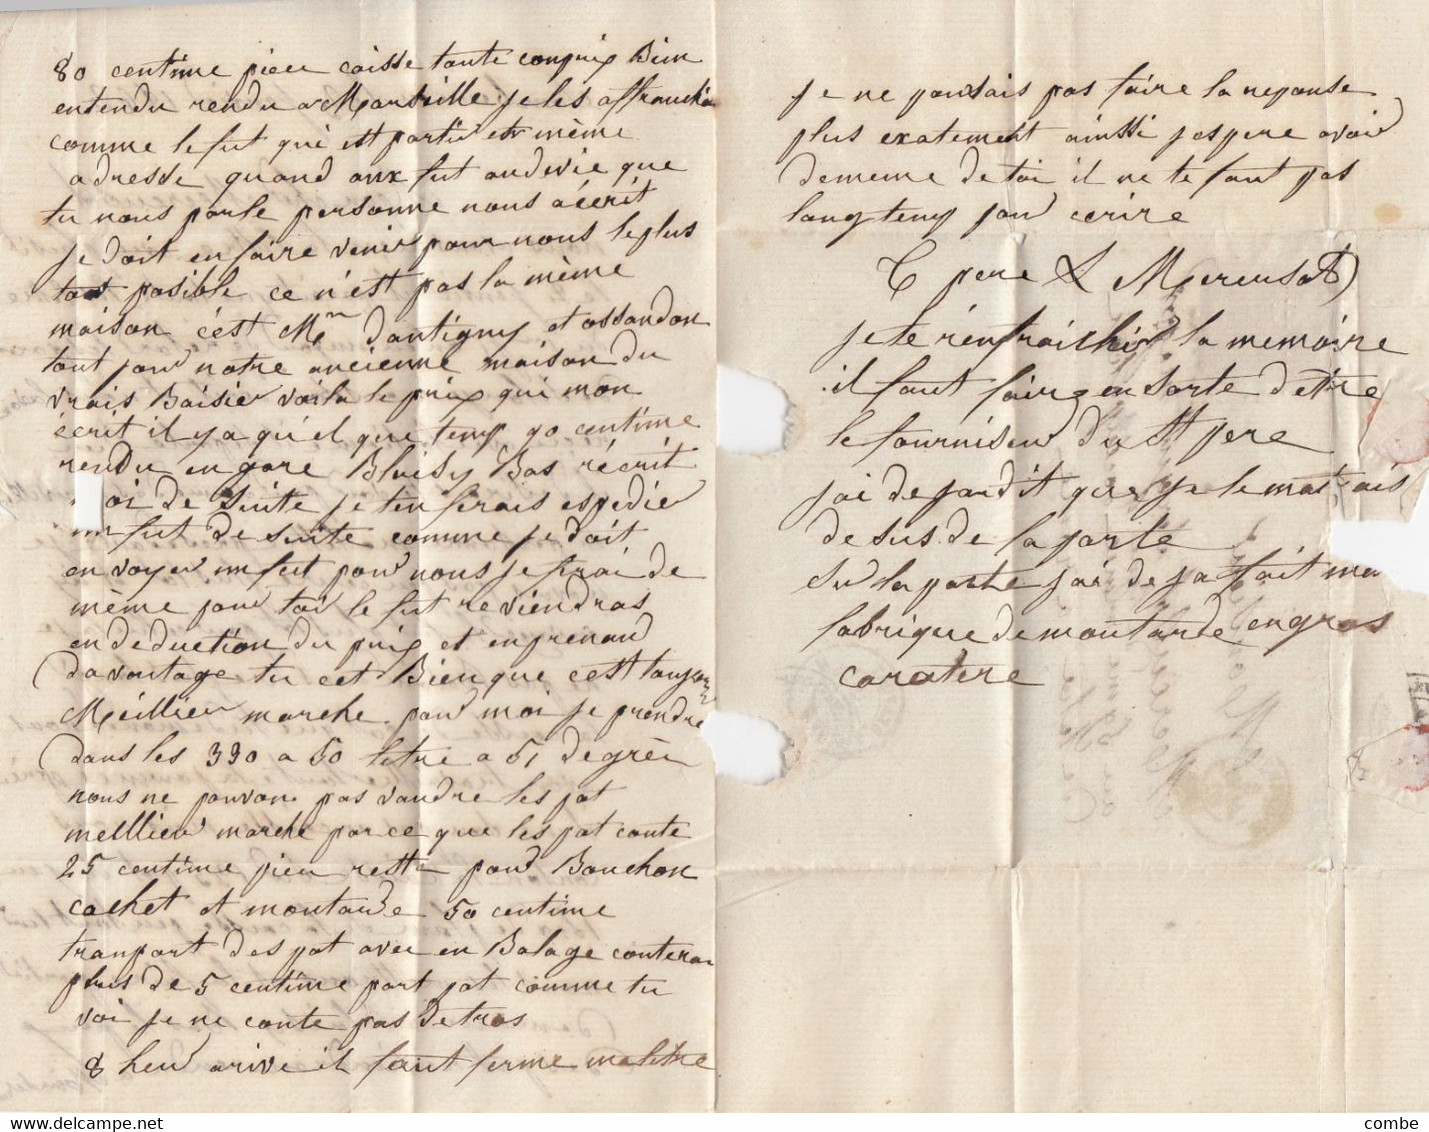 80 centime pieu caisse toute conprix Bien
entendu rendu a Marseille je les affranchi
comme le fut qui est partie et même
adresse quand aux fut audevie que
tu nous parle personne nous a écrit
je doit en faire venir pour nous le plus
tot posible ce n'est pas la même
maison c'est Mr Dantigny et ossandon
tout pour notre ancienne maison du
vrais Baisier voila le prix qui mon
écrit il y a qu'el que temp 90 centime
rendu en gare Blaisy Bas récrit
moi de suite je ten ferais espedier
un fut de suite comme je doit
en voyer un fut pour nous je ferai de
même pour toi le fut reviendras
en deduction du prix et en prenand
davantage tu cet Bien que c'est toujours
Meillieur marche pour moi je prendre
dans les 330 a 50 letre a 51 degrés
nous ne pouvon pas vandre les pot
melllieur marche parce que les pot conte
25 centime pieu reste pour Bouchon
cachet et moutarde 50 centime
tranport des pot avec en Balage conteron
plus de 5 centime part pot comme tu
voi je ne conte pas de tros
8 heur arive il faut ferme ma letre
je ne pouvais pas faire la reponse
plus exatement ainssi j'espere avoir
de meme de toi il ne te faut pas
longtemp pour ecrire
T pere L Mereusat
je te rénfraichir la memoire
il faut faire en sorte d'etre
le fournisseur du St pere
jai de ja dit que je le metrais
desus de la porte
Sur la porte jai deja fait me
fabrique de moutarde en gros
caratere
combe